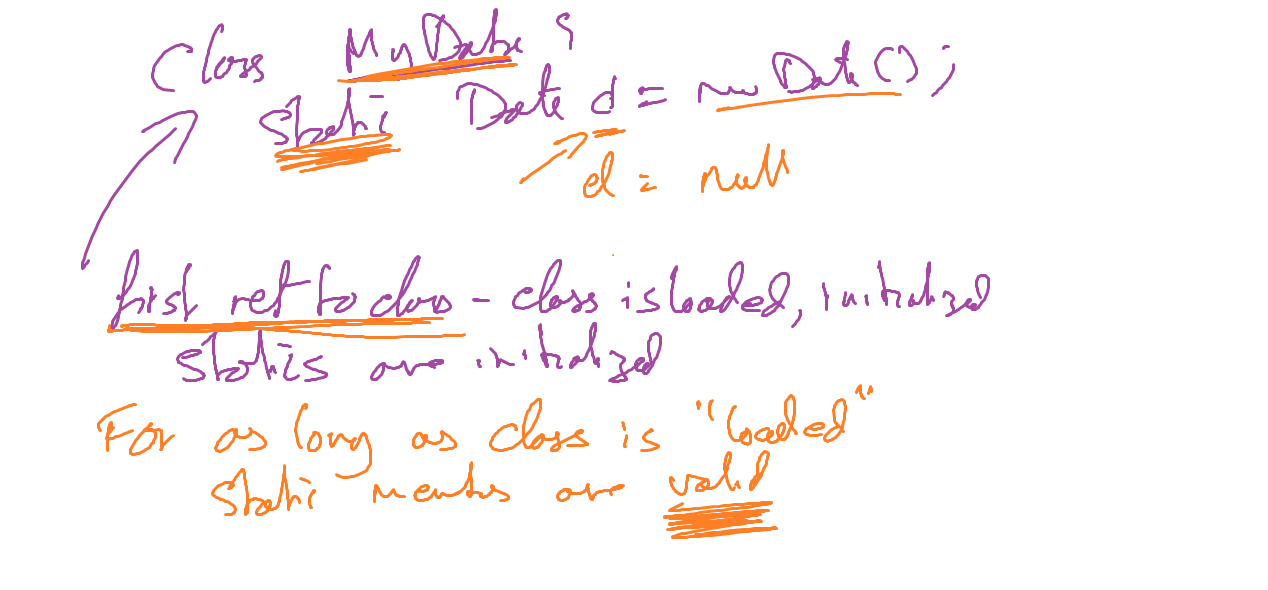 Class MyDate {
Static Date d = new Date();
d = null
first ref to class - class is loaded, initialized
statics are initialized
For as long as class is "loaded"
Static members are valid